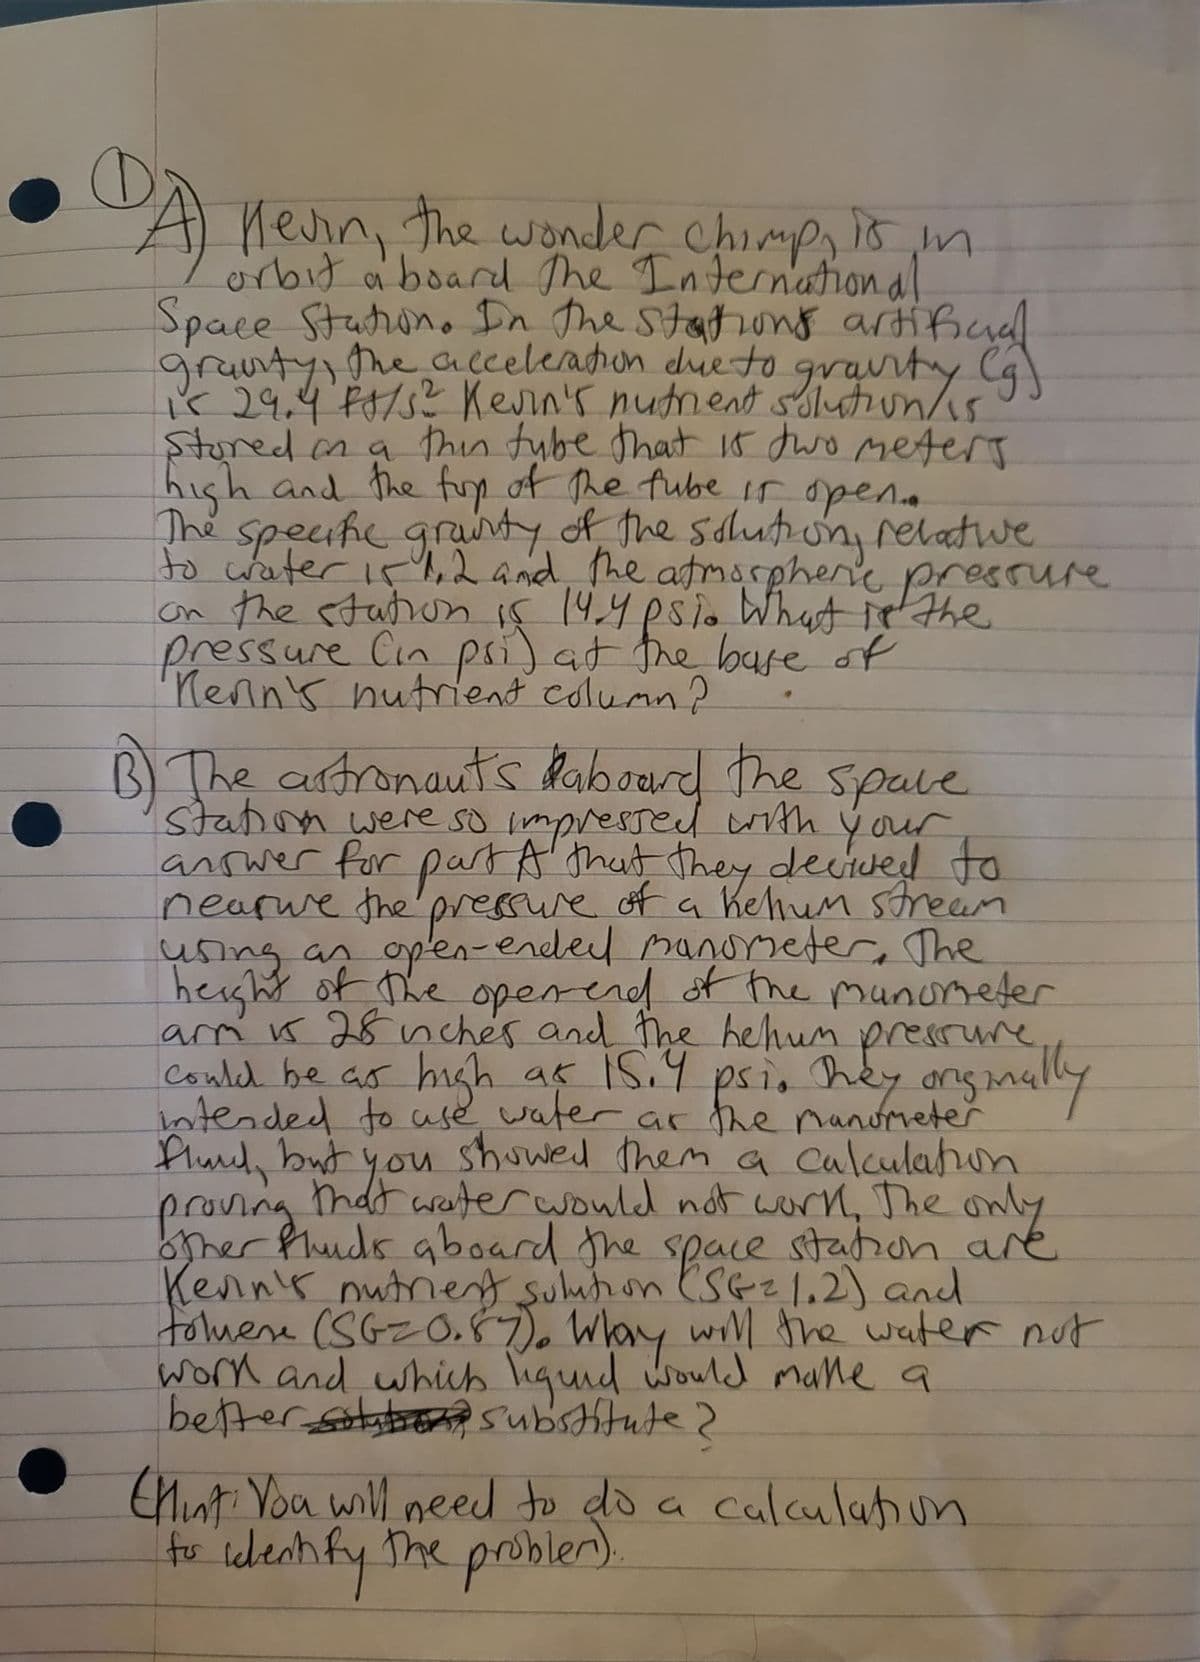 ①
A) Kevin, the wonder chimp, is in
orbit aboard the International
Space Station. In the station's artificial
gravity, the acceleration due to gravity (g)
is 29.4 ft/s² Kevin's nutrient solution is
stored in a thin tube that is two meters
high and the top of the tube is open.
The specific gravity of the solution, relative
to water is 1.2 and the atmospheric pressure
on the station is 14.4 psi. What is the
pressure (in psi) at the base of
Kevin's nutrient column?
B) The astronauts aboard the space
station were so impressed with your
answer for part A that they decided to
measure the pressure of a helium stream
using an open-ended manometer. The
height of the open end of the manometer
arm is 28 inches and the helium pressure
could be as high as 15.4 psi. They originally
intended to use water as the manometer
fluid, but you showed them a calculation
proving that water would not work. The only
other fluids aboard the space station are
Kevin's nutrient solution (SG=1.2) and
toluene (SG=0.87). Why will the water not
work and which liquid would make a
better substitute?
(Hint: You will need to do a calculation
to identify the problem).